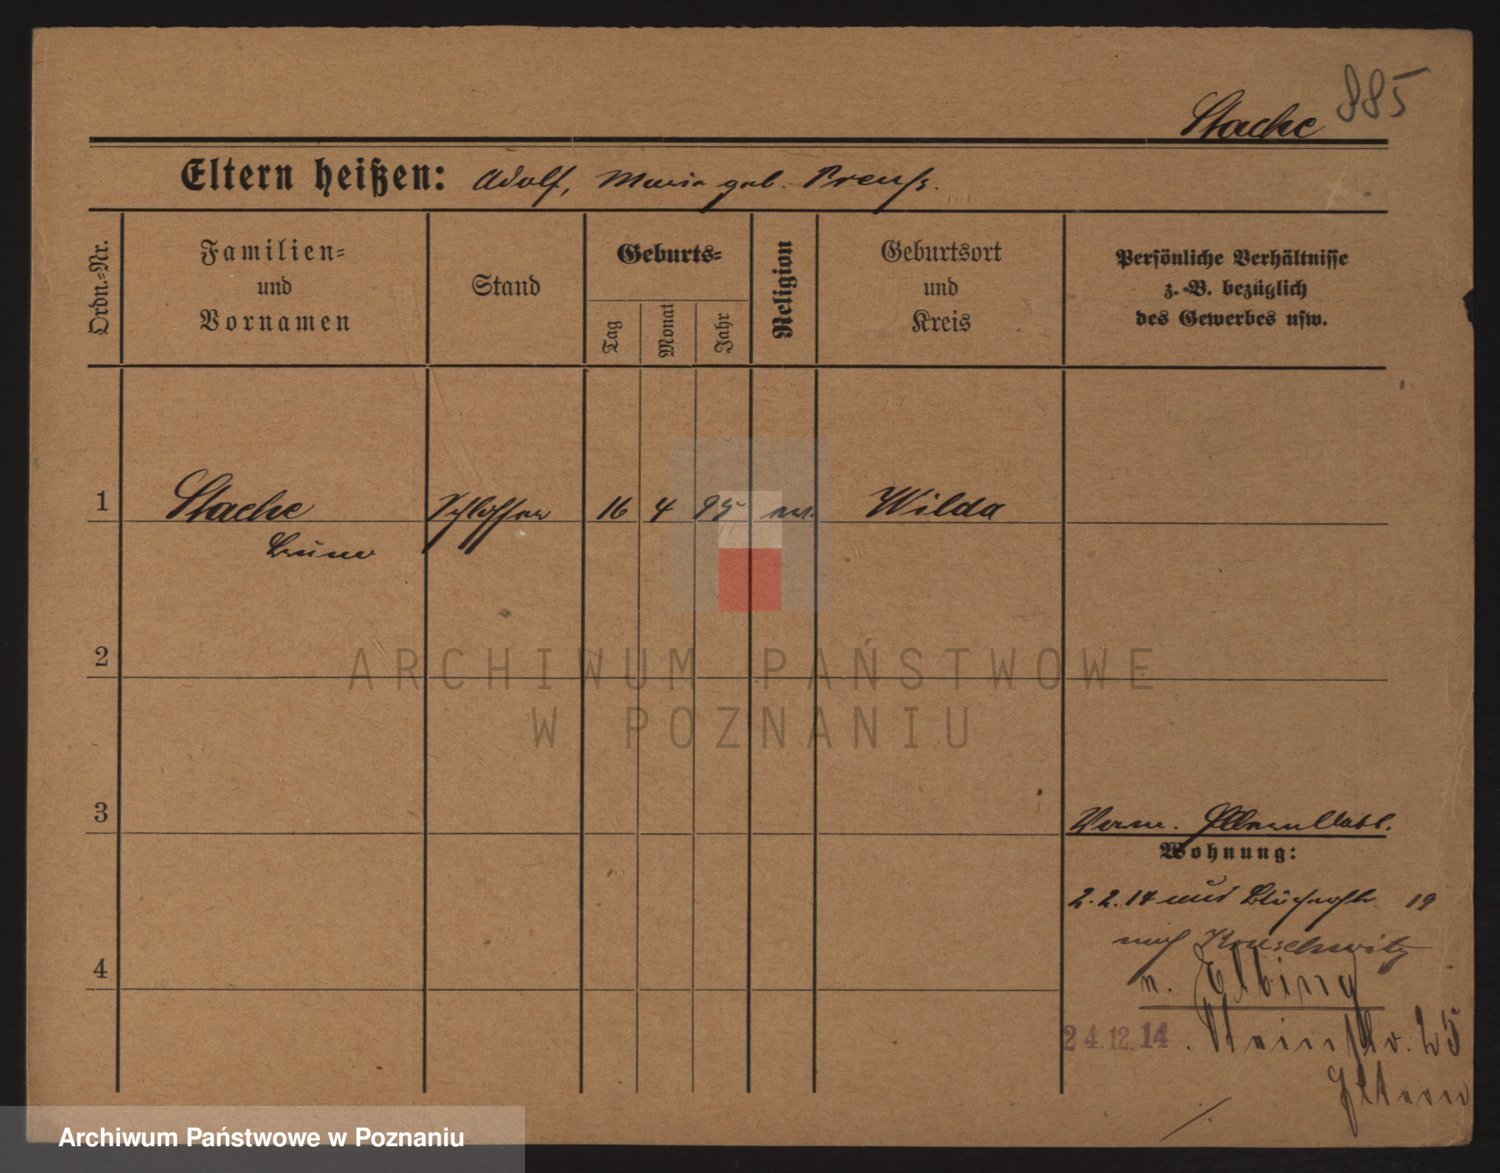 885
Stache
Eltern heißen: Adolf, Maria geb. Preuß.
Ordn.-Nr.
Familien-
und
Vornamen
Stand
Geburts-
Tag
Monat
Jahr
Religion
Geburtsort
und
Kreis
Persönliche Verhältnisse
z. B. bezüglich
des Gewerbes usw.
1 Stache Schlosser 16 4 95 ev. Wilda
Bruno
2
ARCHIWUM PAŃSTWOWE
W POZNANIU
3
Wohnung:
2.2.14 Blücherstr. 19
nach
4
n. Elbing
24.12.14. Steinstr. 25
Eltern
Archiwum Państwowe w Poznaniu